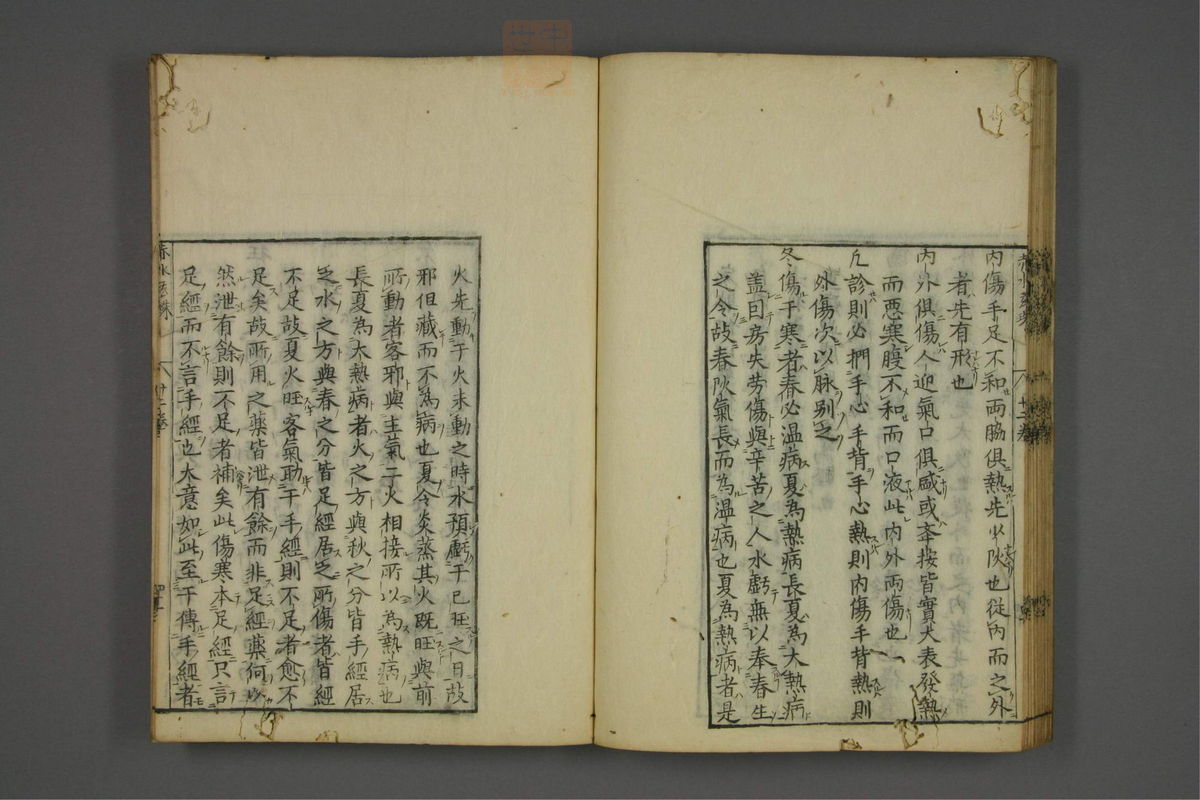 內傷手足不和兩脇俱熱先少陽也從內而之外
者先有形也
內外俱傷人迎氣口俱盛或夲按皆實大表發熱
而惡寒腹不和而口液此內外兩傷也
凢診則必捫手心手背手心熱則內傷手背熱則
外傷次以脉別之
冬傷于寒者春必温病夏為熱病長夏為大熱病
盖因房失劳傷與辛苦之人水虧無以奉春生
之令故春陽氣長而為温病也夏為熱病者是
火先動于火未動之時水預虧于已旺之日故
邪但藏而不為病也夏令炎蒸其火既旺與前
所動者客邪與主氣二火相接所以為熱病也
長夏為大熱病者火之方與秋之分皆手經居
之水之方與春之分皆足經居之所傷者皆經
不足故夏火旺客氣助于手經則不足者愈不
足矣故所用之藥皆泄有餘而非足經藥何以
然泄有餘則不足者補矣此傷寒本足經只言
足經而不言手經也大意如此至于傳手經者